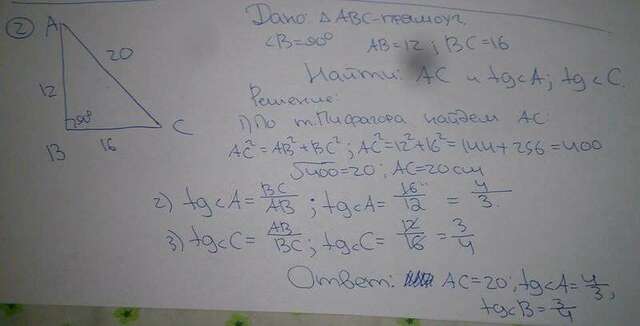 2
A
20
12
90°
B
16
C
Дано: △ABC-прямоуг,
<B=90° AB=12; BC=16
Найти: AC и tg<A; tg<C.
Решение:
1) По т. Пифагора найдем AC:
AC²=AB²+BC²; AC²=12²+16²=144+256=400
√400=20; AC=20см
2) tg<A=BC/AB; tg<A=16/12=4/3.
3) tg<C=AB/BC; tg<C=12/16=3/4
Ответ: AC=20; tg<A=4/3;
tg<B=3/4